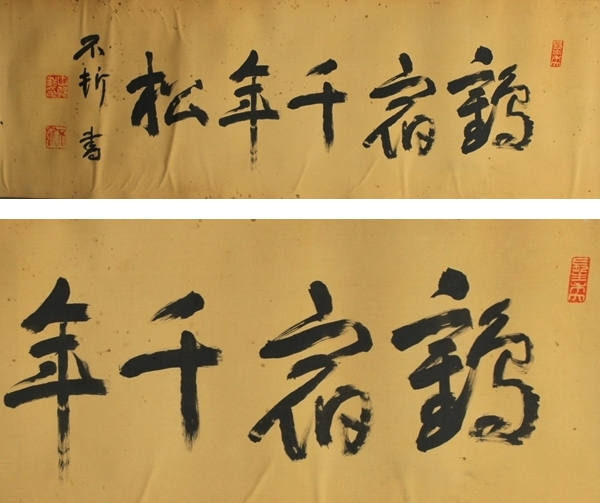 鶴宿千年松
不折書
鶴宿千年